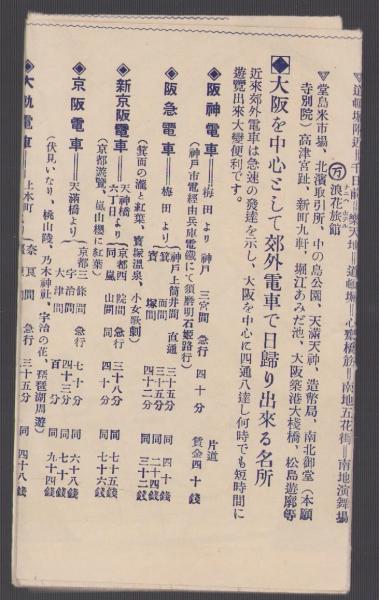 ▽道頓堀附近＝千日前＝樂天地＝道頓堀＝心齋橋筋＝南地五花街＝南地演舞場
万 浪花旅館
▽堂島米市場、北濱取引所、中の島公園、天滿天神、造幣局、南北御堂（本願
寺別院）高津宮趾、新町九軒、堀江あみだ池、大阪築港大棧橋、松島遊廓等
◆大阪を中心として郊外電車で日歸り出來る名所
近來郊外電車は急速の發達を示し、大阪を中心に四通八達し何時でも短時間に
遊覽出來大變便利です。
◆阪神電車＝梅田より 神戶 三宮間 急行 四十分 片道賃金四十錢
（神戶市電經由兵庫電鐵にて須磨明石姬路行）
◆阪急電車＝梅田より 神戶上筒井間 直通 三十五分 同 四十錢
箕面間 三十五分 同 二十四錢
寶塚間 四十二分 同 三十二錢
（箕面の瀧と紅葉、寶塚溫泉、小女歌劇）
◆新京阪電車＝天神橋六丁目より 京都四條院間 急行 三十八分 同 七十五錢
同 嵐山間 同 四十分 同 七十六錢
（京都遊覽、嵐山櫻に紅葉）
◆京阪電車＝天滿橋より 京都三條間 急行 七十分 同 六十八錢
宇治間 四十三分 同 五十七錢
大津間 百分 同 九十四錢
（伏見いなり、桃山陵、乃木神社、宇治の花、琵琶湖周遊）
◆大軌電車＝上本町より 奈良間 三十五分 同 四十八錢